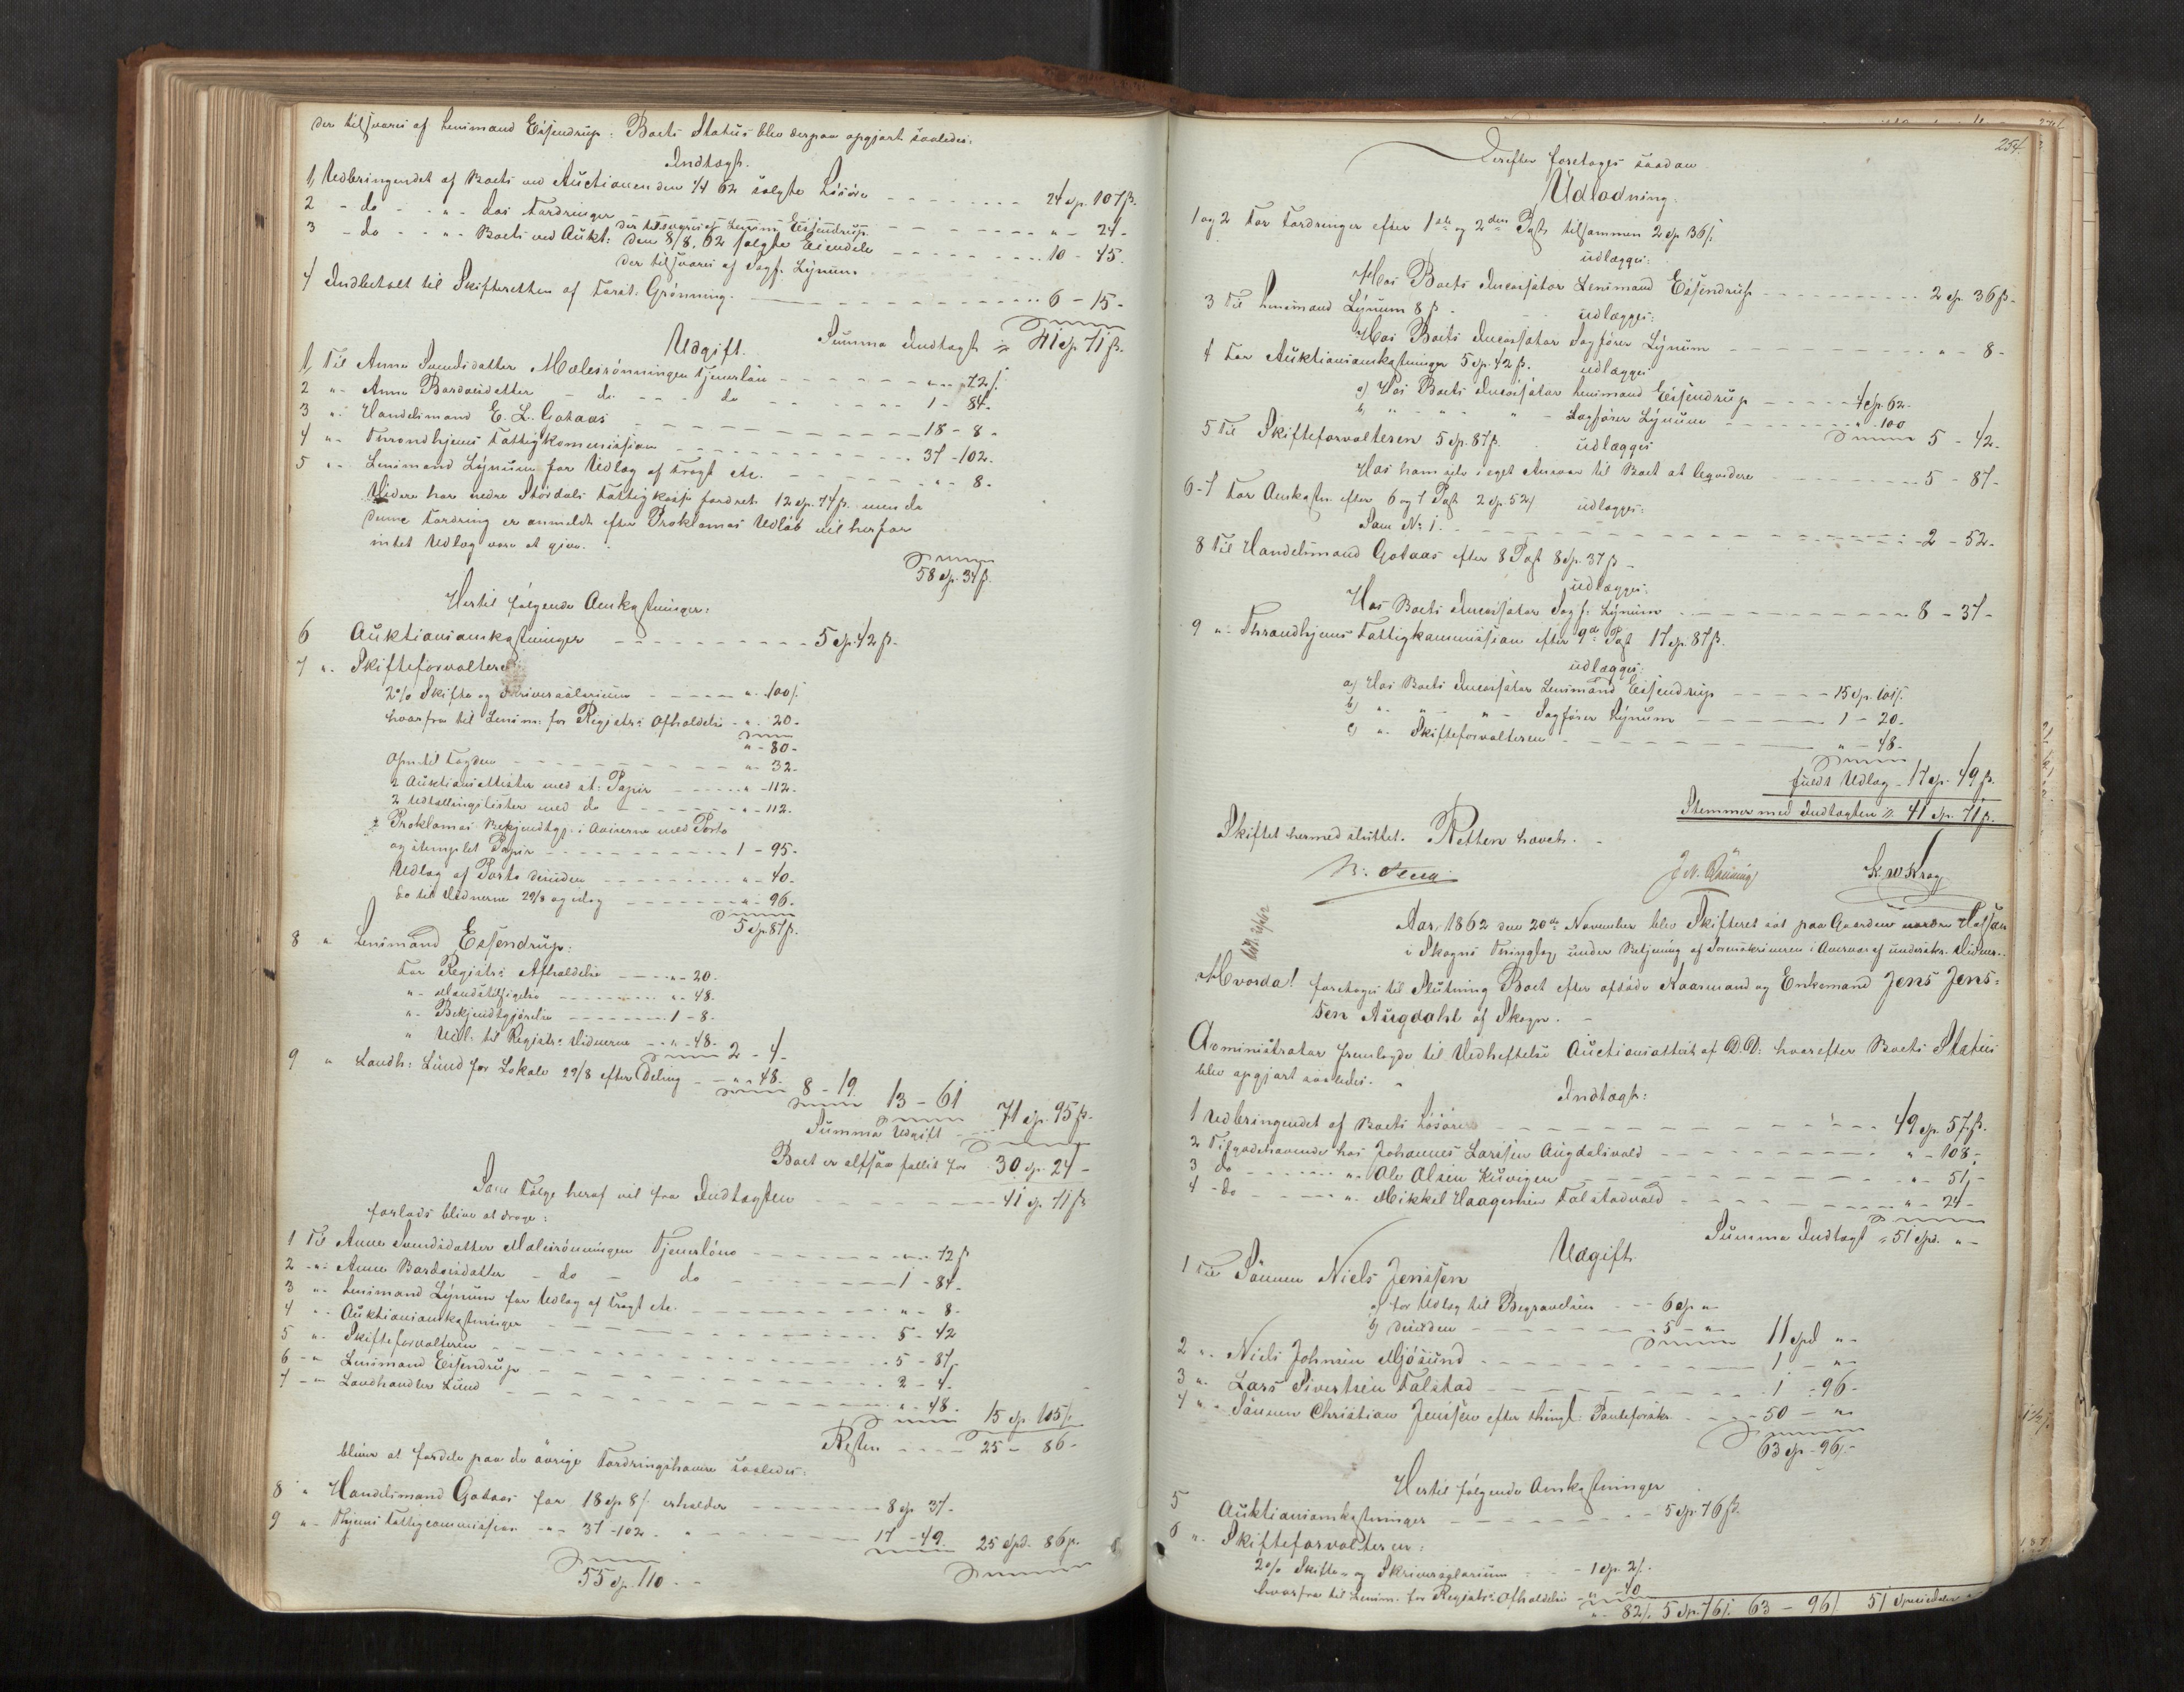 der tilsvares af Lensmand Eisendrup: Boets Status blev derpaa opgjort saaledes:
Indtægt.
1, Udbringendet af Boets ved Auctionen den 1/4 62 solgte Løsøre - - - 24 sp. 107 ß.
2 - do - - " - dos Fordringer - - - " - 24 -
der tilsvares af Lensm: Eisendrup
3 - do - - " - Boets ved Aukt: den 8/8. 62 solgte Eiendele - - - 10 - 45.
der tilsvares af Sagf. Lynum
4 Indbetalt til Skifteretten af Grønning. - - - 6 - 15 -
Summa Indtægt = 41 sp 71 ß.
Udgift.
1, Til Anne Svendsdatter Malesrønningen Tjenerløn - - - " - 72 ß.
2 " - Anne Bardosdatter - do - - do - - - 1 - 84 -
3 " - Handelsmand E. L. Gotaas - - - 18 - 8 -
4 " - Throndhjems Fattigkommission - - - 37 - 102 -
5 " - Lensmand Lynum for Udlæg af Fragt etc. - - - " - 8 -
Videre har nedre Størdals Fattigkasse fordret 12 sp. 74 ß. men da
denne Fordring er anmeldt efter Proklamas Udløb vil herfor
intet Udlæg være at give.
58 sp. 34 ß.
Hertil følgende Omkostninger:
6 Auktionsomkostninger - - - 5 sp. 42 ß.
7 " Skifteforvalteren
2% Skifte og Skriversalarium - - - " - 100 ß.
hvorfra til Lensm: for Registr: Afholdelse - " - 20 -
" - 80 -
Opsn til Fogden - - - " - 32 -
2 Auktionsattester med st: Papir - - - " - 112 -
2 Udtællingslister med do - - - " - 112 -
Proklamas Bekjendtgj. i Aviserne med Porto
og stemplet Papir - - - 1 - 95 -
Udlæg af Porto desuden - - - " - 40 -
do til Vidnerne 29/8 og idag - - - " - 96 -
5 sp. 87 ß.
8 " Lensmand Eisendrup:
For Registr: Afholdelse - - - " - 20 -
" - Mandstilsigelse - - - " - 48 -
" - Bekjendtgjørelse - - - 1 - 8 -
" Udl. til Registr: Vidnerne - - " - 48 -
2 - 4 -
9 " Landh: Lund for Lokale 29/8 efter Deling - - " - 48 -
8 - 19 13 - 61
Summa Udgift - - 71 sp. 95 ß.
Boet er altsaa fallit for 30 sp. 24 -
Som Følge heraf vil fra Indtægten - - - 41 sp 71 ß
forlods blive at drage:
1 Til Anne Svendsdatter Malesrønningen Tjenerløn - - - " - 72 ß
2 - " - Anne Bardosdatter - do - do - - - 1 - 84 -
3 " - Lensmand Lynum for Udlæg af Fragt etc. - - - " - 8 -
4 " - Auktionsomkostninger - - - 5 - 42
5 " - Skifteforvalteren - - - 5 - 87
6 - " Lensmand Eisendrup - - - 2 - 4 -
7 - " Landhandler Lund - - - " - 48 -
15 sp 105 ß.
Resten - - - 25 - 86 -
bliver at fordele paa de øvrige Fordringshavere saaledes:
8 " Handelsmand Gotaas for 18 sp 8 ß. erholder - - - 8 sp 37 -
9 " - Thjems Fattigcommission " - 37 - 102 - " - - - 17 - 49. 25 spd. 86 ß.
55 sp. 110 - -
254.
Derefter foretoges saadan
Udlodning.
1 og 2 For Fordringer efter 1ste og 2den Post tilsammen 2 sp 36 ß.
udlægges:
Hos Boets Incassator Lensmand Eisendrup - - - 2 sp. 36 ß -
3 Til Lensmand Lynum 8 ß - udlægges:
Hos Boets Incassator Sagfører Lynum - - - " - 8 -
4 For Auktionsomkostninger 5 sp. 42 ß. udlægges
a) Hos Boets Incassator Lensmand Eisendrup - - - 4 sp. 62 -
b) " - " - " - Sagfører Lynum - - - " - 100
5 - 42 -
5 Til Skifteforvalteren 5 sp. 87 ß. udlægges
Hos ham selv i eget Ansvar til Boet at liqvidere - - - 5 - 87 -
6 - 7 For Omkostn. efter 6 og 7 Post 2 sp. 52 ß udlægges:
Som No 1. - - - 2 - 52 -
8 Til Handelsmand Gotaas efter 8 Post 8 sp. 37 ß -
udlægges:
Hos Boets Incassator Sagf: Lynum - - - 8 - 37 -
9 " - Throndhjems Fattigkommission efter 9de Post 17 sp. 87 ß.
udlægges:
a) Hos Boets Incassator Lensmand Eisendrup - - - 15 sp. 101 ß.
b) " - " - " - Sagfører Lynum - - - 1 - 20 -
c) " - Skifteforvalteren - - - " - 48 -
fuldt Udlæg - 17 sp. 49 ß.
Stemmer med Indtægten = 41 sp. 71 ß.
Skiftet hermed sluttet. Retten hævet. -
K. W Krog
Aar 1862 den 20de November blev Skifteret sat paa Gaarden nordre
i Skogns Thinglag, under Betjening af Sorenskriveren i Overvær af underskr. Vidner.
Hvorda! foretoges til Slutning Boet efter afdøde Kaarmand og Enkemand Jens Jens-
sen Augdahl af Skogn. -
Administrator fremlagde til Vedheftelse Auctionsattest af D.D: hvorefter Boets Status
blev opgjort saaledes. -
Indtægt:
1 Udbringendet af Boets Løsøre - - - 49 sp. 57 ß.
2 Tilgodehavende hos Johannes Larssen Augdalsvald - - - " - 108 -
3 do - - - " - Ole Olsen Kuvigen - - - " - 51 -
4 - do - - - " - Mikkel Haagensen Falstadvald - - - " - 24 -
Summa Indtægt = 51 spd. " -
Udgift
1 Til Sønnen Niels Jenssen
a) for Udlæg til Begravelsen - - 6 sp " -
b) desuden - - - 5 - " -
11 spd " -
2 " - Niels Johnsen Mjøsund - - - 1 - " -
3 " - Lars Sivertsen Falstad - - - 1 - 96 -
4 " - Sønnen Christian Jenssen efter thingl: Panteforskr. - - 50 - " -
63 sp - 96 ß. -
Hertil følgende Omkostninger
5 Auktionsomkostninger - - - 5 sp. 76 ß.
6 " - Skifteforvalteren:
2% Skifte- og Skriversalarium - - 1 sp. 2 ß. -
hvorfra til Lensm. for Registr: Afholdelse - " - 40
" - 82 ß. 5 sp. 76 ß. 63 - 96 ß. 51 Speciedaler